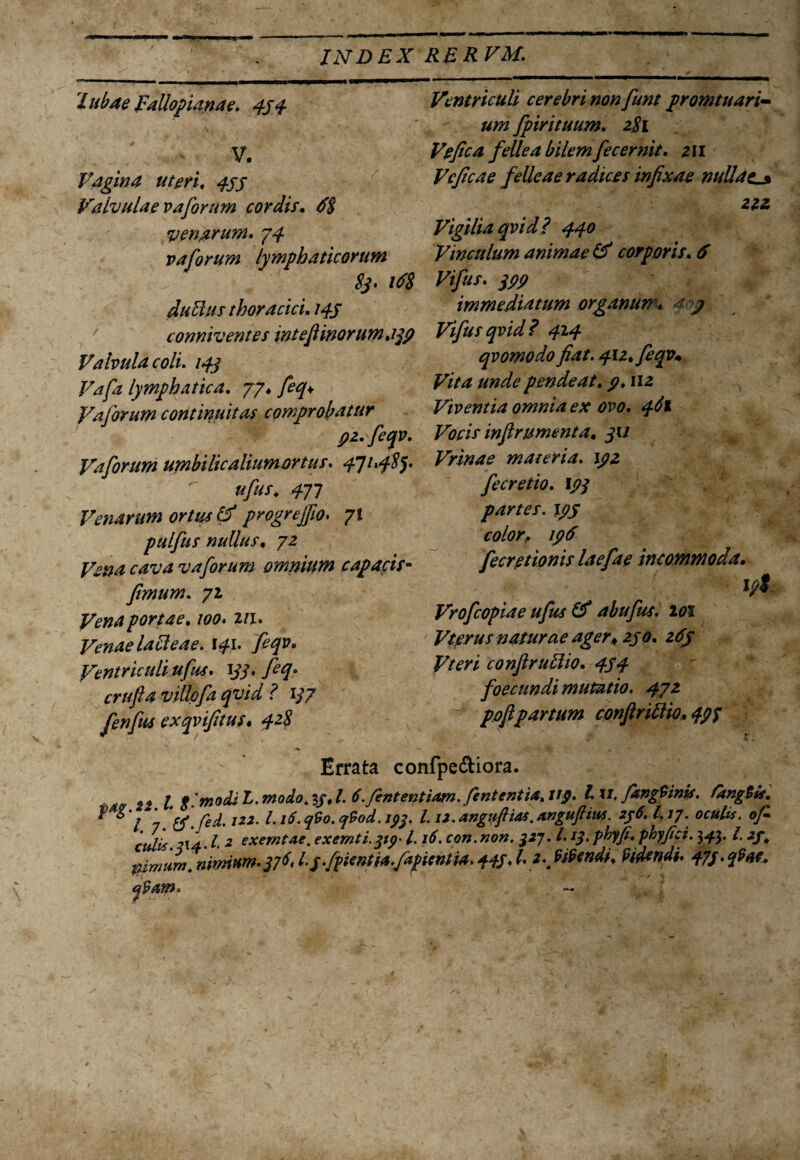 INDEX RERVM.
Tubae Fallopianae. 454
V.
Vagina uteri. 455
Valvulae vaſorum cordis. 68
venarum. 74
vaſorum lymphaticorum
83. 168
ductus thoracici. 145
conniventes inteſtinorum. 139
Valvula coli. 143
Vaſa lymphatica. 77. ſeq.
Vaſorum continuitas comprobatur
92. ſeqv.
Vaſorum umbilicalium ortus. 471.485.
uſus. 477
Venarum ortus & progreſſio. 71
pulſus nullus. 72
Vena cava vaſorum omnium capaciſ-
ſimum. 71
Vena portae. 100. 211.
Venae lacteae. 141. ſeqv.
Ventriculi uſus. 133. ſeq.
cruſta villoſa qvid? 137
ſenſus exqviſitus. 428
Ventriculi cerebri non ſunt promtuari-
um ſpirituum. 281
Veſica fellea bilem ſecernit. 211
Veſicae felleae radices infixae nullae
222
Vigilia qvid? 440
Vinculum animae & corporis. 6
Viſus. 399
immediatum organum. 409
Viſus qvid? 414
qvomodo fiat. 412. ſeqv.
Vita unde pendeat. p. 112
Viventia omnia ex ovo. 461
Vocis inſtrumenta. 311
Vrinae materia. 192
ſecretio. 193
partes. 195
color. 196
ſecretionis laeſae incommoda.
198
Vroſcopiae uſus & abuſus. 201
Vterus naturae ager. 250. 265
Vteri conſtructio. 454
foecundi mutatio. 472
poſt partum conſtrictio. 495
Errata conſpectiora.
pag. 22. l. 8. modi L. modo. 35. l. 6. ſententiam. ſententia. 119. l. 11. ſangvinis. ſangvis.
l. 7. & ſed. 122. l. 16. qvo. qvod. 193. l. 12. anguſtias. anguſtius. 256. l. 17. oculis. oſ-
culis. 314. l. 2 exemtae. exemti. 319. l. 16. con. non. 327. l. 13. phyſi. phyſici. 343. l. 25.
nimum. nimium. 376. l. 5. ſpientia. ſapientia. 445. l. 2. vivendi. videndi. 475. qvae.
qvam.